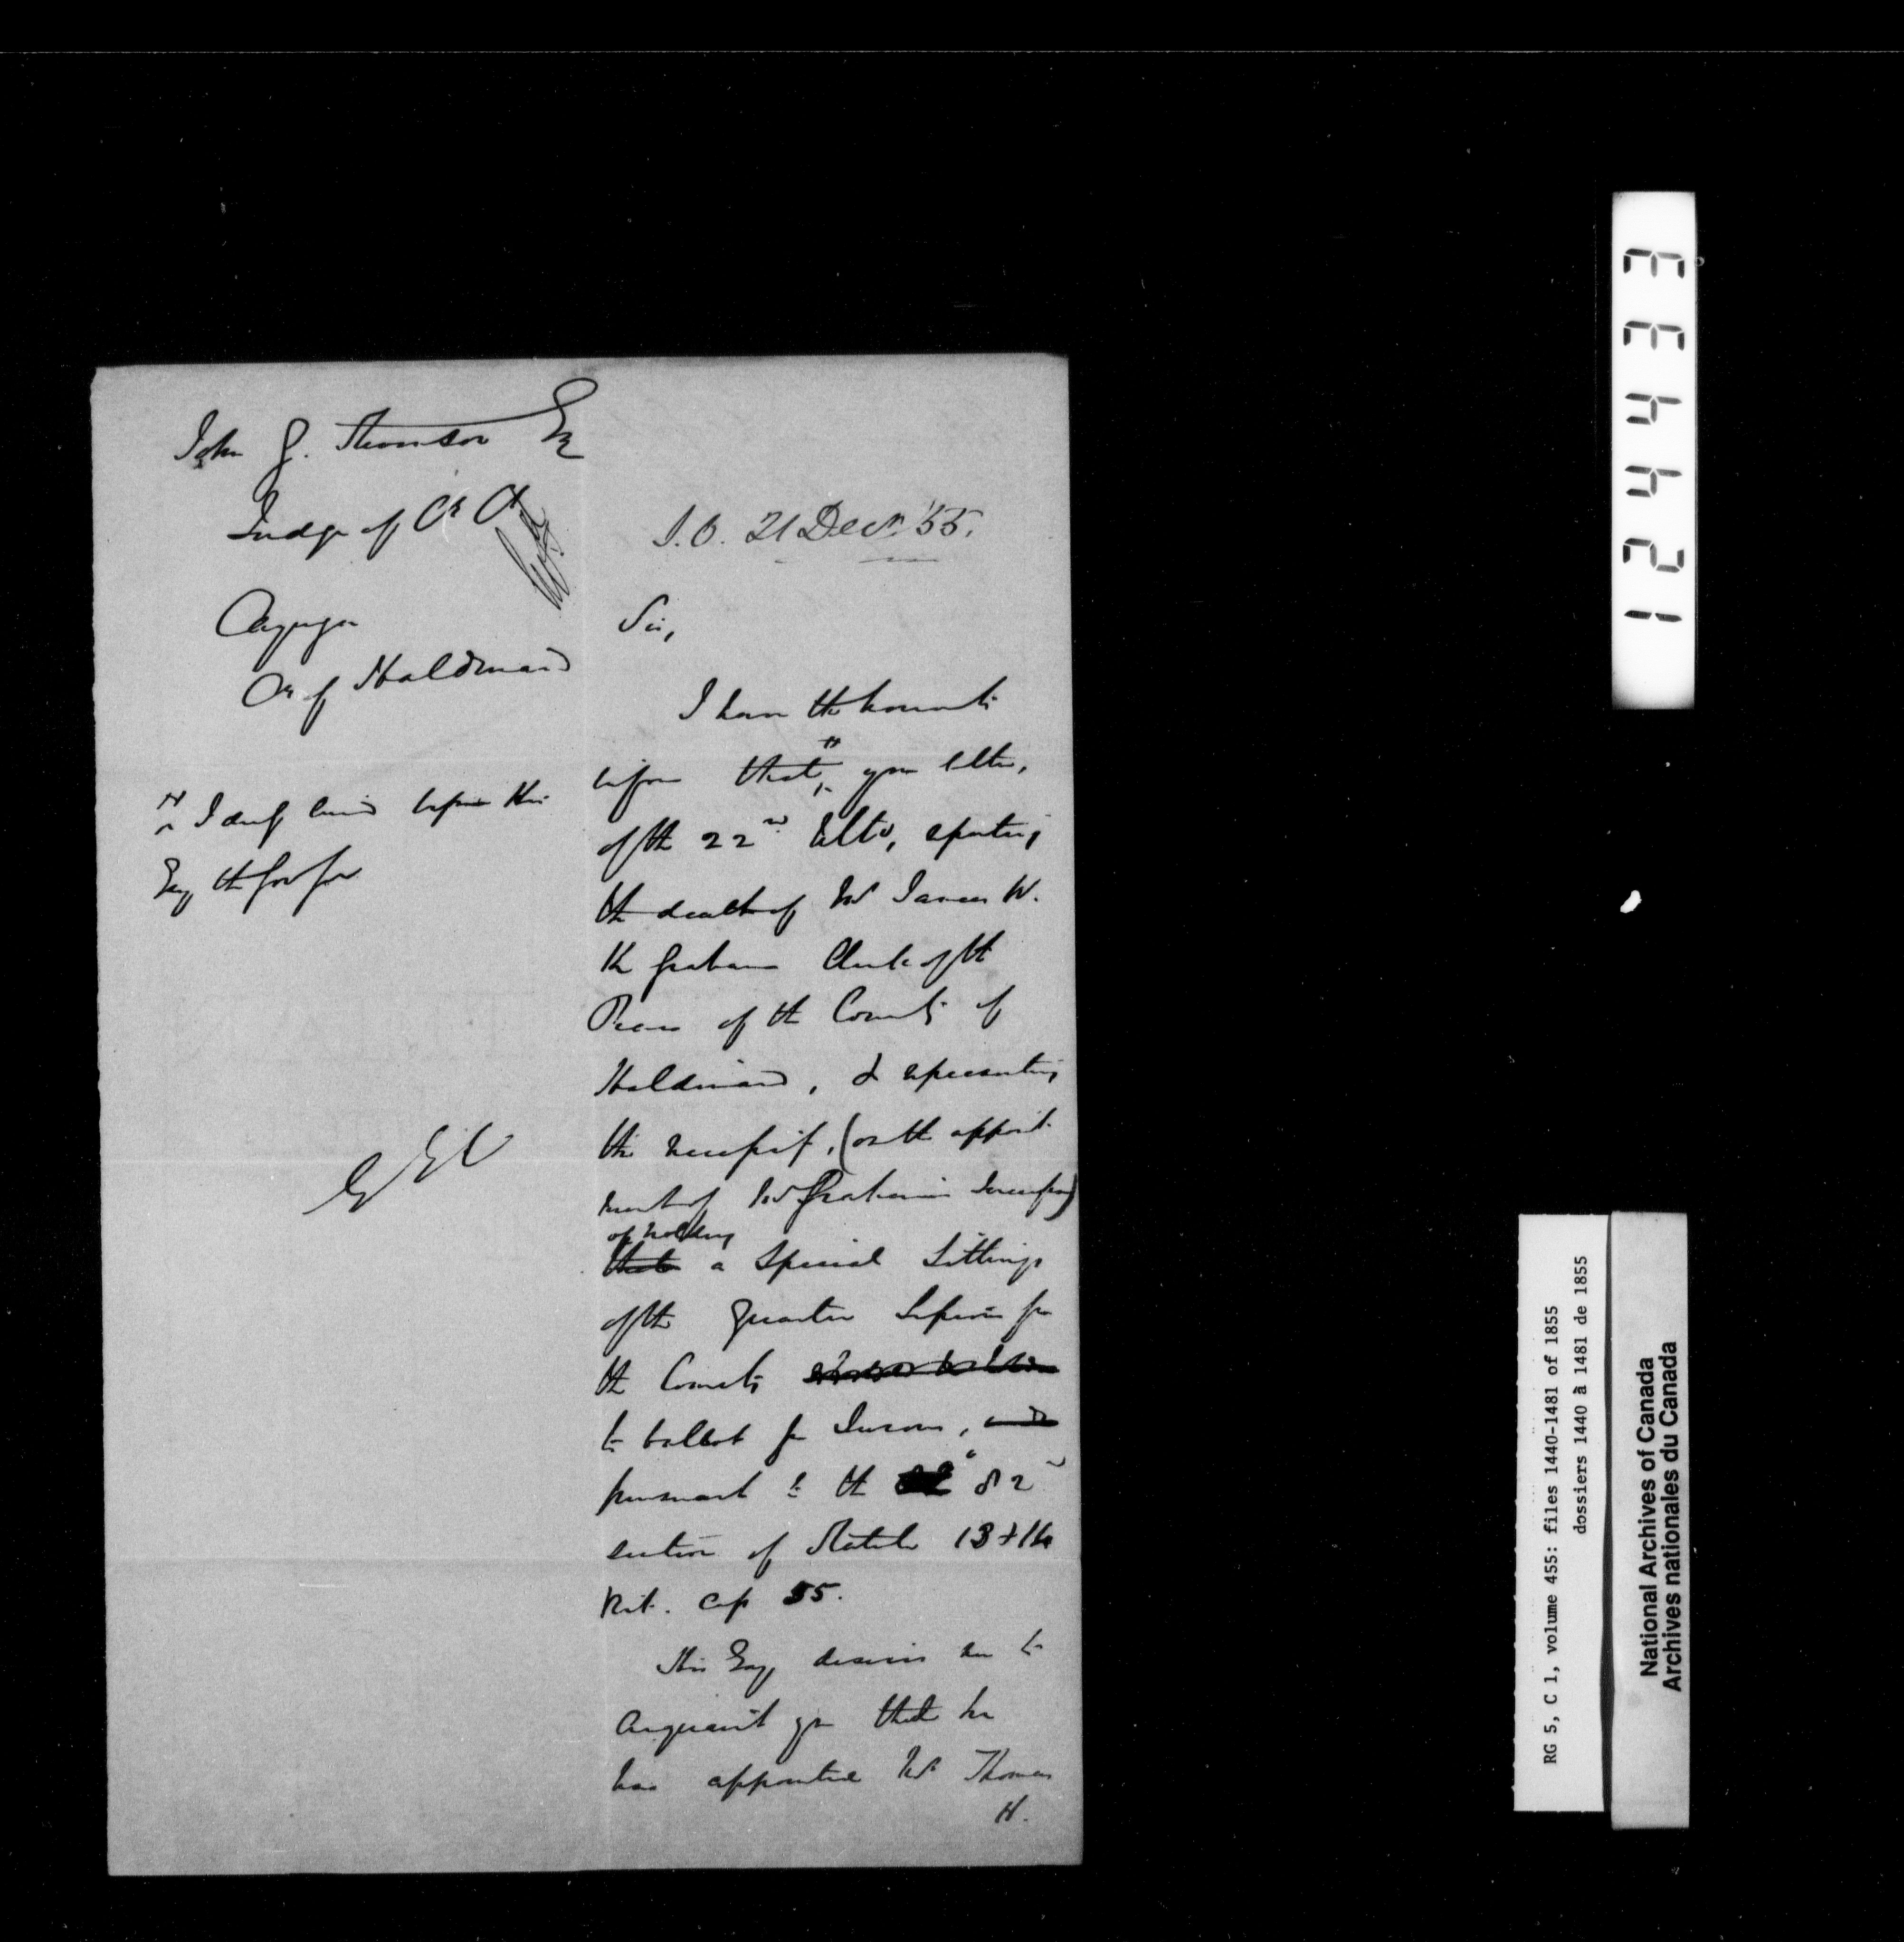 John G. Thomson Esq
Judge of Co Ct
Cayuga
Co of Haldimand
S.O. 21 Decr. '55.
Sir,
I have the honor to
inform that, your letter,
I duly laid before His
Exy the Gov Gen
of the 22nd Ulto, reporting
the death of Mr James W.
Graham Clerk of the
Peace of the County of
Haldimand, & representing
the necessity, (on the appoint-
ment of Mr Graham's successor)
of holding
that a Special Sittings
of the Quarter Sessions for
the County
to ballot for Jurors, and
pursuant to the 82
section of Statute 13 & 14
Vict. Cap 55.
His Exy desires me to
acquaint you that he
has appointed Mr Thomas
H.
124433
RG 5, C 1, volume 455: files 1440-1481 of 1855
dossiers 1440 à 1481 de 1855
National Archives of Canada
Archives nationales du Canada